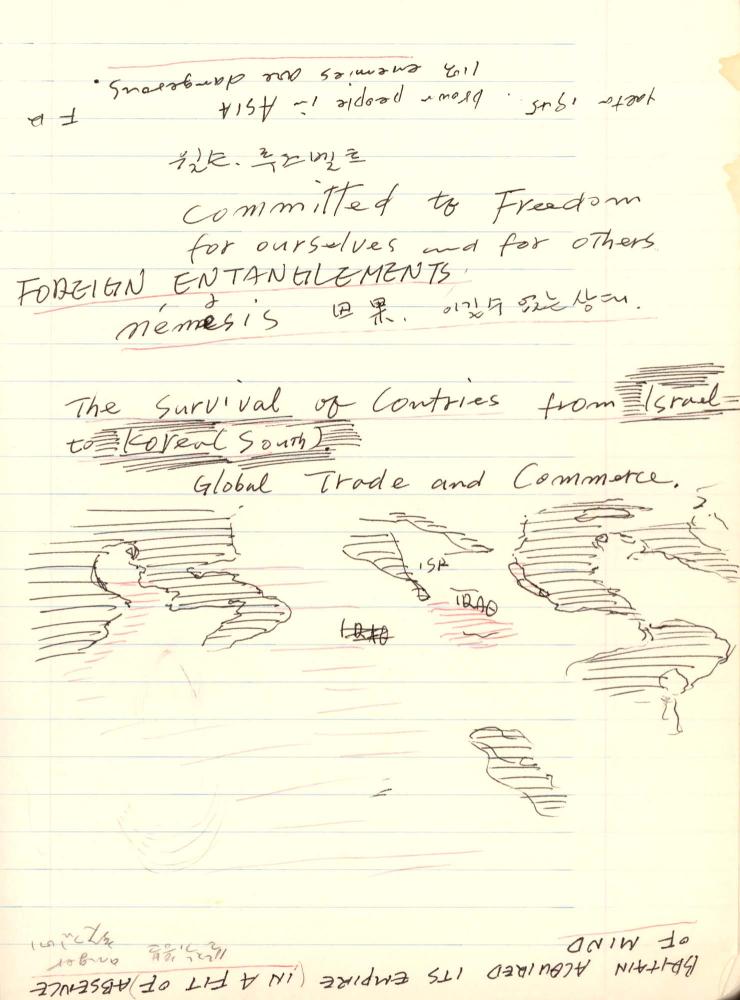 brown people in ASIA
enemies are dangerous.
루즈벨트
committed to Freedom
for ourselves and for others
FOREIGN ENTANGLEMENTS
némesis 因果. 이길수 없는 상대.
The Survival of Contries from Israel
to Korea (South).
Global Trade and Commerce.
ISR
IRAQ
IRAQ
BRITAIN ACQUIRED ITS EMPIRE (IN A FIT OF) ABSENCE
OF MIND
anger